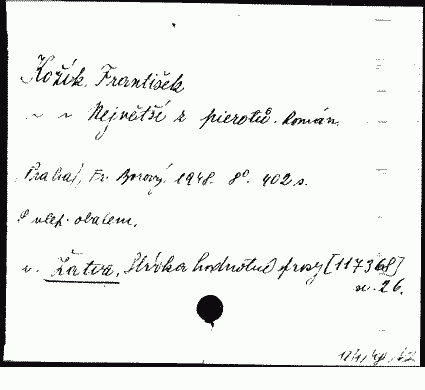 Kožík, František
~ ~ Největší z pierotů. Román.
Praha), Fr. Borový. 1948. 8°. 402 s.
S vlep. obalem.
v. Žatva. Sbírka hodnotné prosy [117368]
sv. 26.